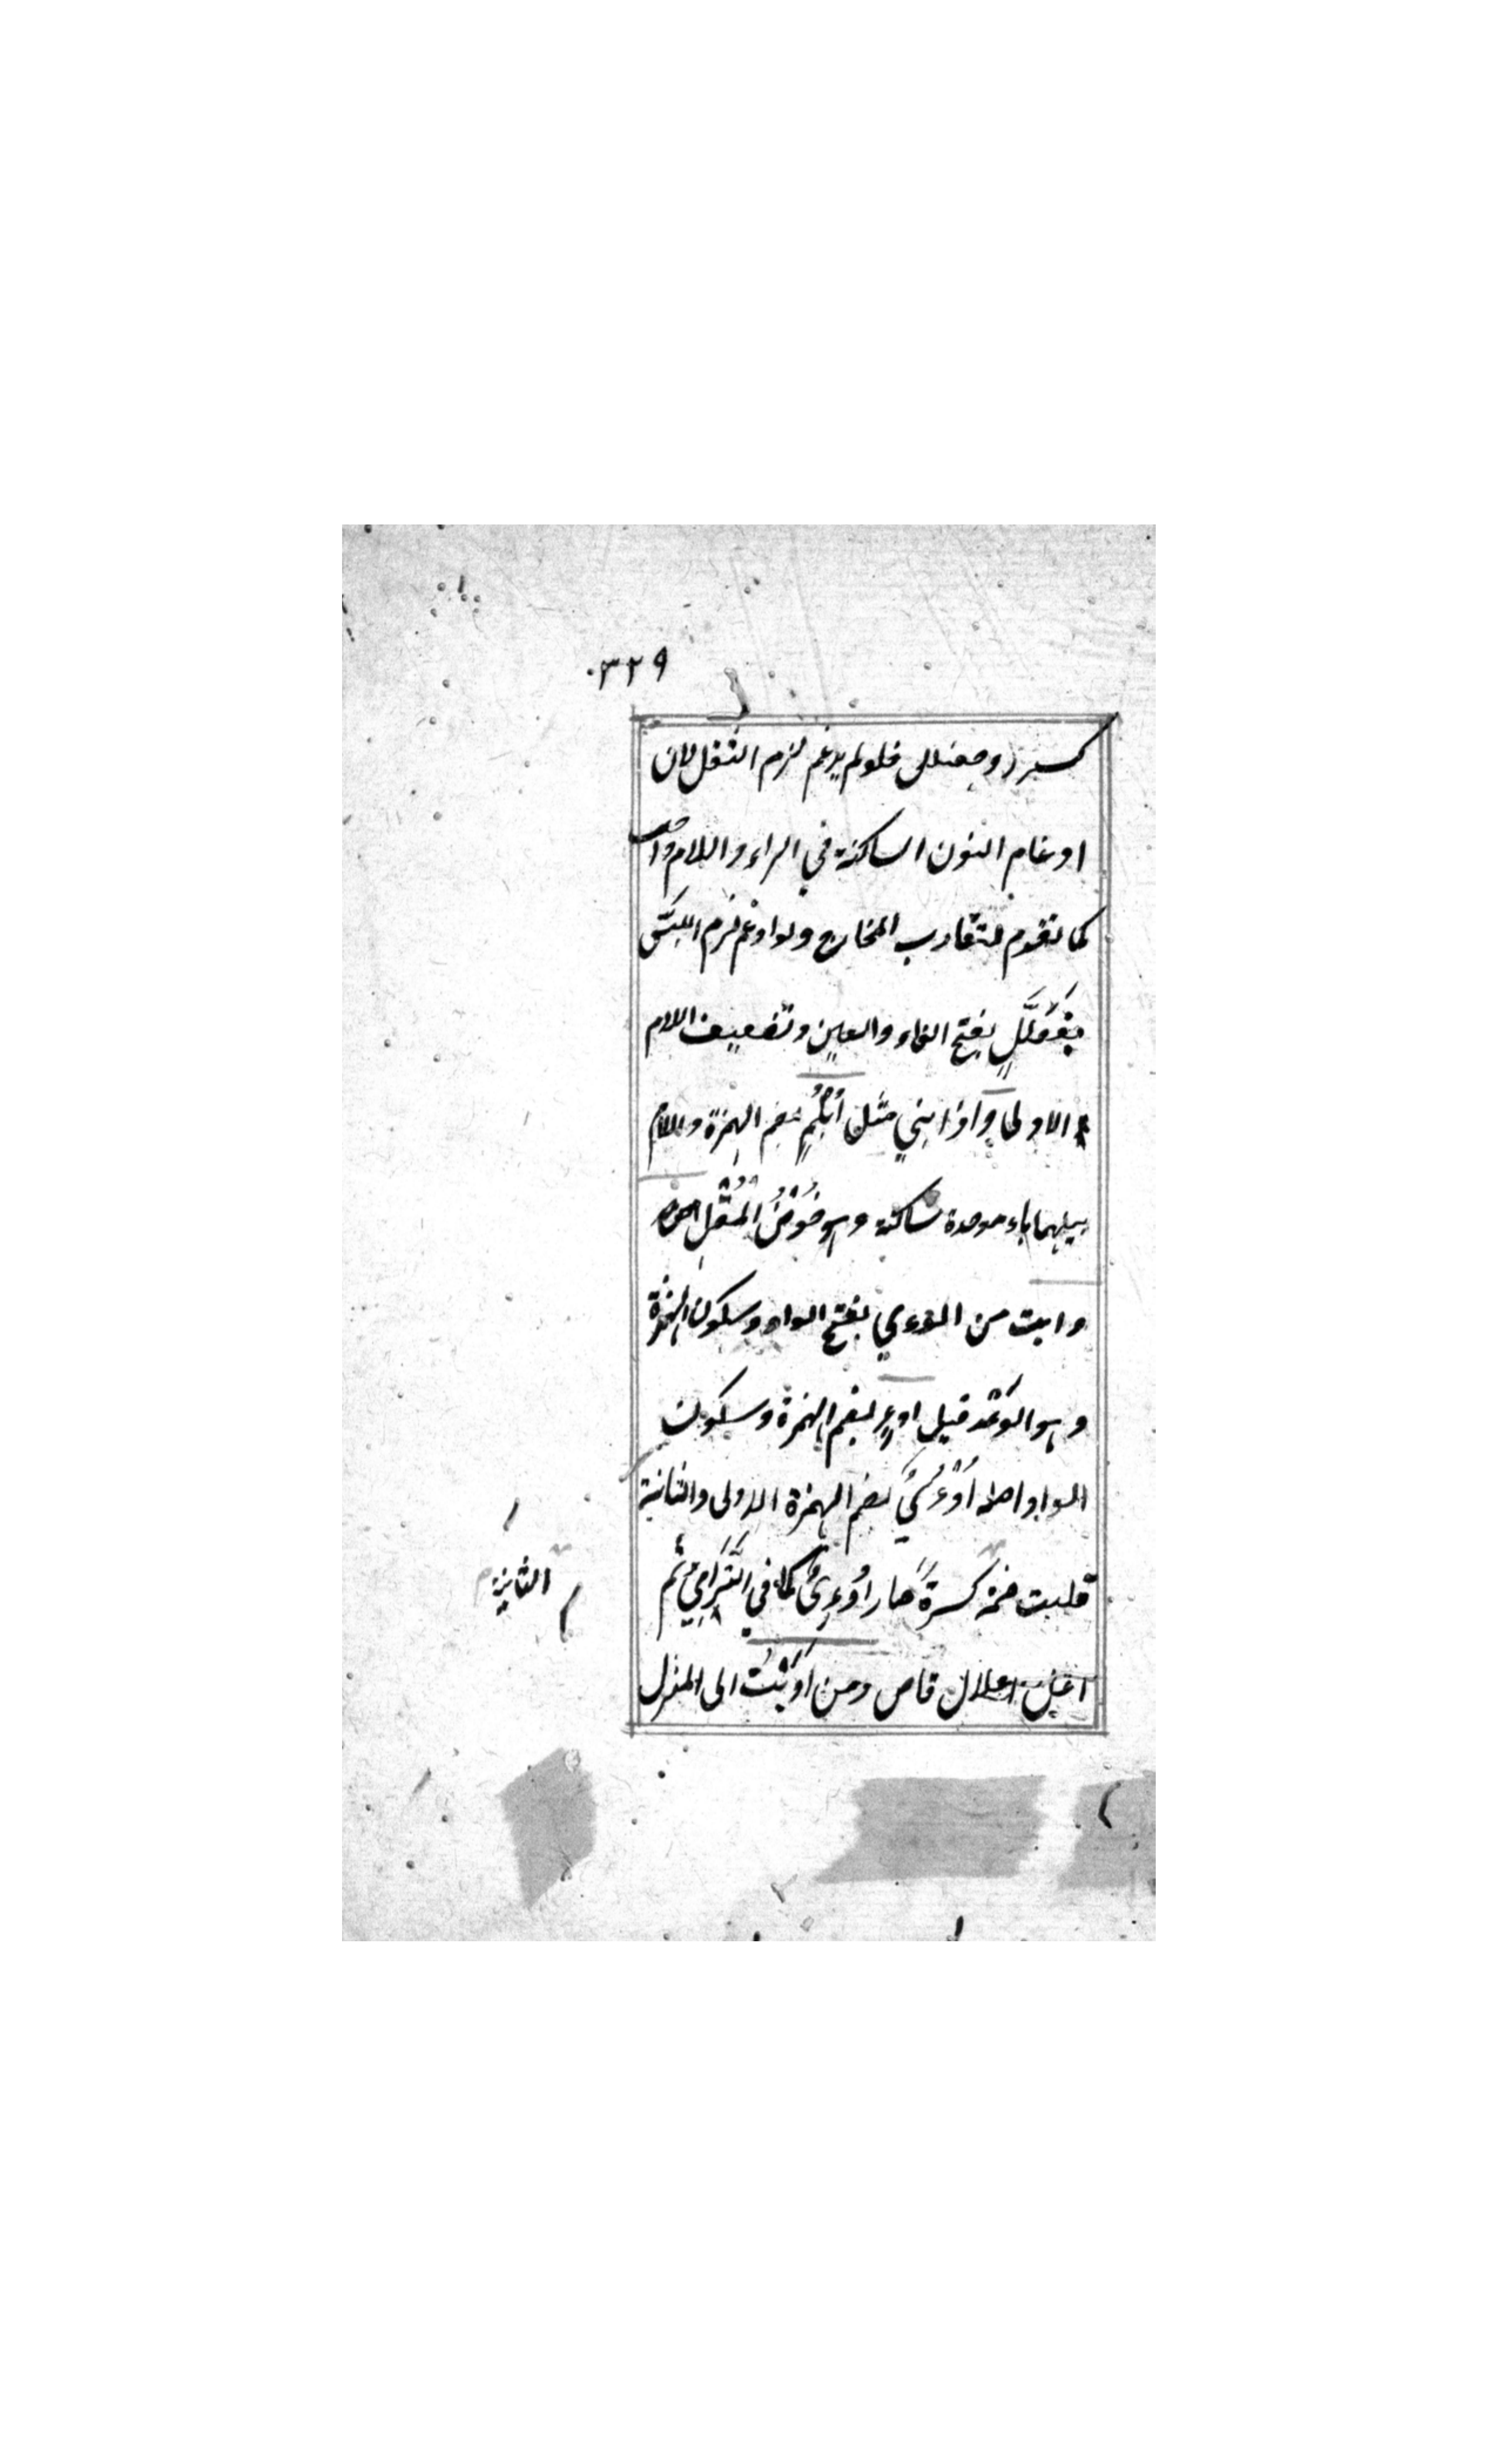 ٣٢٩
كسرر وجعنلل فلو لم يدغم لزم الثقل لان
ادغام النون الساكنة في الراء واللام واجب
كما تقدم لتقارب المخارج ولو ادغم لزم اللبس
بفَعَلَّلٍ بفتح الفاء والعين وتضعيف اللام
الاولى واذا بني مثل أُبْلُمٍ بضم الهمزة واللام
بينهما باء موحدة ساكنة وهو خُوْصُ الْمُقْلِ
وايت من الوءي بفتح الواو وسكون الهمزة
وهو الوَعْد قيل اوءٍ بضم الهمزة وسكون
الواو اصله أُوْءُيٌ بضم الهمزة الاولى والثانية
قلبت ضمة كسرةً صار أُوْءِيٌ كما في التَّرَامِي ثم
الثانية
اعل اعلال قاض ومن أَوَيْتُ الى المنزل